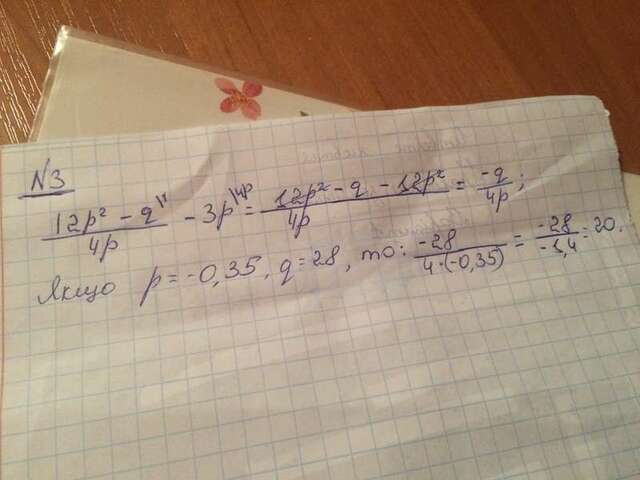 N3
(12p² - q)/4p \¹ - 3p \⁴ᵖ = (12p² - q - 12p²)/4p = -q/4p ;
Якщо p = -0,35, q = 28, то: -28/(4·(-0,35)) = -28/-1,4 = 20.